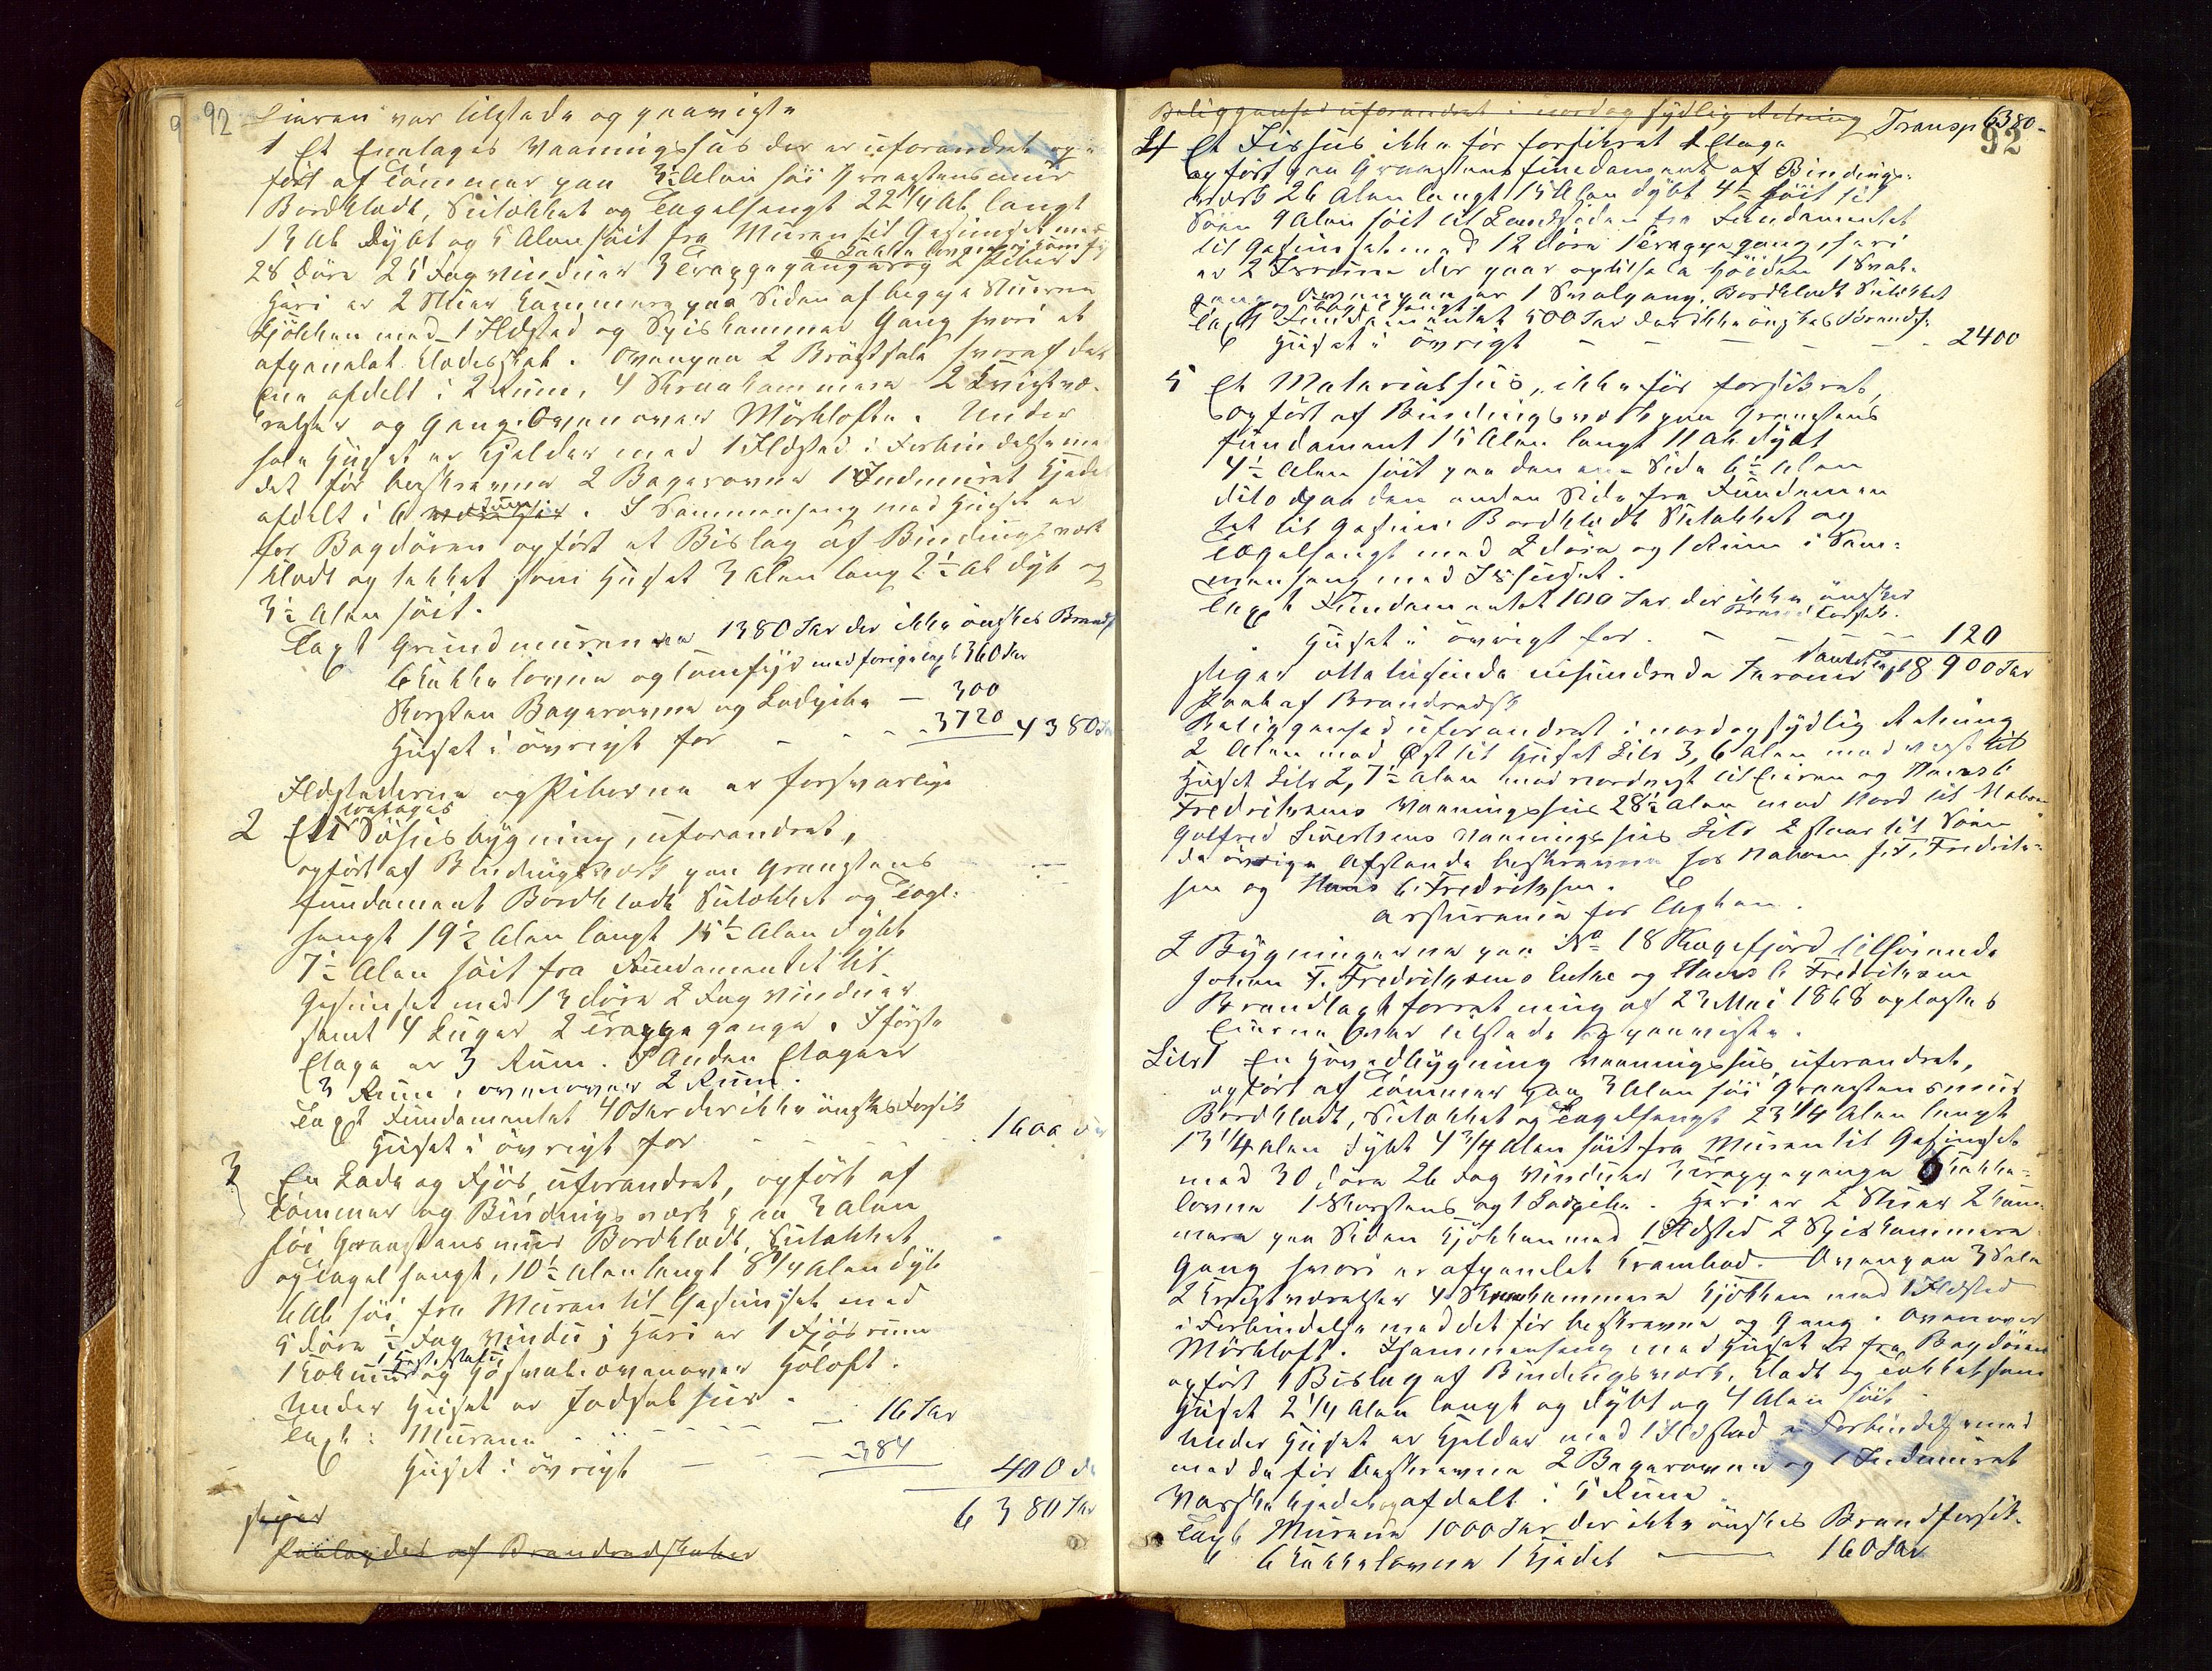 92
Eieren var tilstede og paaviste
1 Et Enetages Vaaningshus der er uforandret op-
ført af Tømmer paa 3½ Alen høi Graastensmuur
Bordklædt, Sutækket og Tagelhængt 22 1/4 Al. langt
13 Al. Dybt og 5 Alen høit fra Muren til Gesimset med
6 Kakkelovne og komfyr
28 Døre 25 Fag vinduer 3 Trappegange og 2 Piber
Heri er 2 Stuer Kammers paa Siden af begge Stuerne
Kjøkken med 1 Ildsted og Spiskammer Gang hvori et
afpanelet Klædeskab. Ovenpaa 2 Brøstsale hvoraf den
ene afdelt i 2 Rum, 4 Skraakammere 2 Kvistvæ-
relser og Gang. Ovenover Mørklofte. Under
hele Huset er Kjelder med 1 Ildsted i Forbindelse med
det før beskrevne 2 Bagerovne 1 Indmuret Kjedel
afdelt i 6 Rum. I Sammenhæng med Huset er
for Bagdøren opført et Bislag af Bindingsværk
klædt og tækket som Huset 3 Alen lang 2½ Al. dyb og
3½ Alen høit.
Taxt Grundmuren 1380 Skr der ikke ønskes Brandf
6 Kakkelovne og Komfyr med forige taxt 360 Skr
Skorsten Bagerovne og Ledpibe — 300
Huset i øvrigt for - - - 3720 4380
Ildstederne og Piberne er forsvarlige
2 Et toetages Søhusbygning, uforandret,
opført af Bindingsværk paa Graastens
fundament Bordklædt Sutækket og Tagl-
hængt 19½ Alen langt 15½ Alen dybt
7½ Alen høit fra Fundamentet til
Gesimset med 13 Døre 2 Fag vinduer
samt 4 Luger 2 Trappegange. I første
Etage er 3 Rum. I Anden Etage er
3 Rum, ovenover 2 Rum.
Taxt Fundamentet 40 Skr der ikke ønskes Forsik
Huset i øvrigt for - - - - - 1600
3 En Lade og Fjøs, uforandret, opført af
Tømmer og Bindingsværk paa 3 Alen
høi Graastensmuur Bordklædt, Sutækket
og Tagelhængt, 10½ Alen langt 8 3/4 Alen dyb
6 Al. høi fra Muren til Gesimset med
5 Døre ½ Fag vindu; Heri er 1 Fjøsrum
1 Hestestald
1 Korum og Høsvale ovenover Høloft.
Under Huset er Fødselhus.
Taxt: Murene - - - - - 16 Skr
Huset i øvrigt - - - 384
400
6380 Skr
siger
Paalagdes af Brandredskaber
Beliggenhed uforandret i nord og sydlig Retning Transp 6380-
92
4 Et Ishus ikke før forsikret 1 Etage
opført paa Graastensfundament af Bindings-
værk 26 Alen langt 15 Alen dybt 4½ høit til
Søen 9 Alen høit til Landsiden fra Fundamentet
til Gesimset med 12 Døre 1 Trappegang, heri
er 2 Isrum der gaar op til hele Høiden 1 Sval-
gang Ovenpaa er 1 Svalgang. Bordklædt Sutækket
og Tagelhængt
Taxt Fundamentet 500 Skr der ikke ønskes Brandf.
Huset i øvrigt - - - - - - 2400
5 Et Materialhus, ikke før forsikret,
opført af Bindingsværk paa Graastens
fundament 15 Alen langt 11 Al. dybt
4½ Alen høit paa den ene Side 6½ Alen
dito paa den anden Side fra Fundamen
tet til Gesims Bordklædt Sutækket og
Tagelhængt med 2 Døre og 1 Rum i Sam-
menhæng med Ishuset.
Taxt Fundamentet 100 Skr der ikke ønskes
Brand Forsik.
Huset i øvrigt for. - - - 120
Samlet taxt 8900 Skr
siger otte tusinde nihundrede Kroner
Paab af Brandredsk
Beliggenhed uforandret i nord og sydlig Retning
2 Alen mod Øst til Huset Litr 3, 6 Alen mod vest til
Huset Litr 2, 7½ Alen mod nordvest til Eieren og Hans C
Fredriksens Vaaningshus 28½ Alen mod Nord til Naboen
Gotfred Sivertsens Vaaningshus Litr 2 staar til Søen
de øvrige Afstande beskrevne hos Naboen Joh. F. Fredrik-
sen og Hans C. Fredriksen.
Assurance for Taxten.
2 Bygningerne paa No 18 Kragefjord tilhørende
Johan F. Fredriksens Enke og Hans C Fredriksen
Brandtaxtforretning af 23 Mai 1868 oplæstes
Eierne var tilstede og paaviste.
Litr 1 En Hovedbygning Vaaningshus, uforandret,
opført af Tømmer paa 3 Alen høi Graastensmuur
Bordklædt, Sutækket og Tagelhængt 23 1/4 Alen langt
13 1/4 Alen dybt 4 3/4 Alen høit fra Muren til Gesimset
med 30 Døre 26 Fag Vinduer 3 Trappegange 6 Kakke-
lovne 1 Skorstens og 1 Ledpibe. Heri er 2 Stuer 2 Kam-
mere paa Siden Kjøkken med 1 Ildsted 2 Spiskammere
Gang hvori er afpanelet Krambod. Ovenpaa 3 Sale
2 Kvistværelser 4 Skraakammere Kjøkken med 1 Ildsted
i Forbindelse med det før beskrevne og Gang. Ovenover
Mørkloft. I Sammenhæng med Huset er fra Bagdøren
opført 1 Bislag af Bindingsværk, klædt og tækket som
Huset 2 1/4 Alen langt og dybt og 4 Alen høit
Under Huset er Kjelder med 1 Ildsted i Forbindelse med
med de før beskrevne 2 Bagerovne og 1 Indmuret
Vaske Kjedel og afdelt i 5 Rum.
Taxt Murene 1000 Skr der ikke ønskes Brandforsik.
6 Kakkelovne 1 Kjedel — 160 Skr